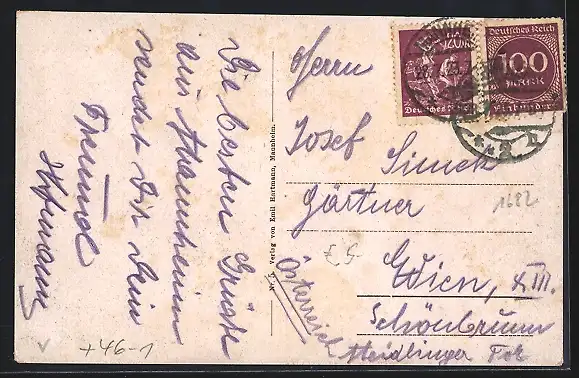 Die besten Grüße
aus Mannheim
sendet Dir Dein
Freund
Hofmann
Nr. Verlag von Emil Hartmann, Mannheim.
Herrn
Josef Simek
Gärtner
Wien, XIII.
Schönbrunn
Meidlinger Tor
Österreich
Deutsches Reich
100
MARK
Deutsches
1682
£5-
+46-1